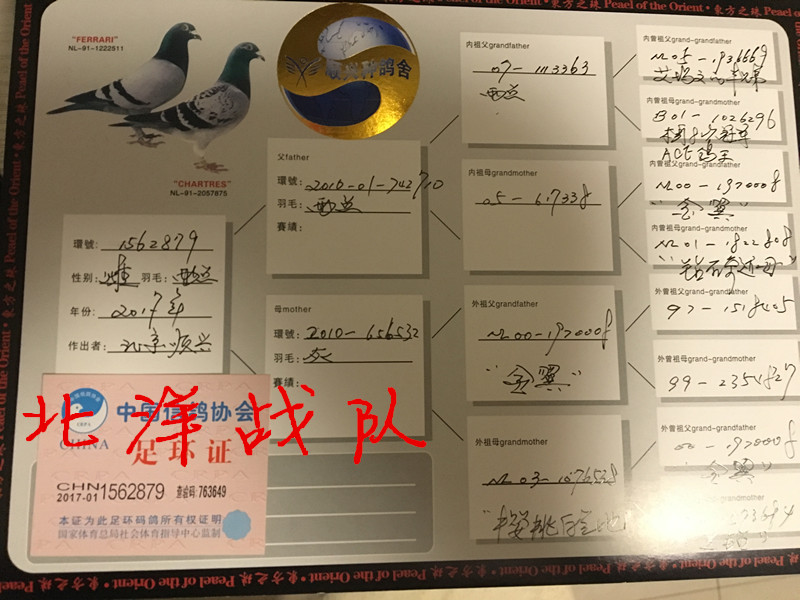 东方之珠 Peael of the Orient
"FERRARI"
NL-91-1222511
"CHARTRES"
NL-91-2057875
顺兴种鸽舍
環號: 1562879
性别: 雄 羽毛:
年份: 2017年
作出者: 北京顺兴
父father
環號: 2010-01-742710
羽毛:
賽績:
母mother
環號: 2010-656532
羽毛: 灰
賽績:
内祖父grandfather
07-1113363
内祖母grandmother
05-617338
外祖父grandfather
NL00-1970008
"金翼"
外祖母grandmother
NL03-1676538
内曾祖父grand-grandfather
NL05-1936669
内曾祖母grand-grandmother
B01-1026296
内曾祖父grand-grandfather
NL00-1970008
"金翼"
内曾祖母grand-grandmother
NL01-1822808
外曾祖父grand-grandfather
97-1518405
外曾祖母grand-grandmother
99-2354827
外曾祖父grand-grandfather
00-1970008
"金翼"
grand-grandmother
北洋战队
中国信鸽协会
CHINA
足环证
CHN
2017-01 1562879 查验码:763649
本证为此足环码鸽所有权证明
国家体育总局社会体育指导中心监制